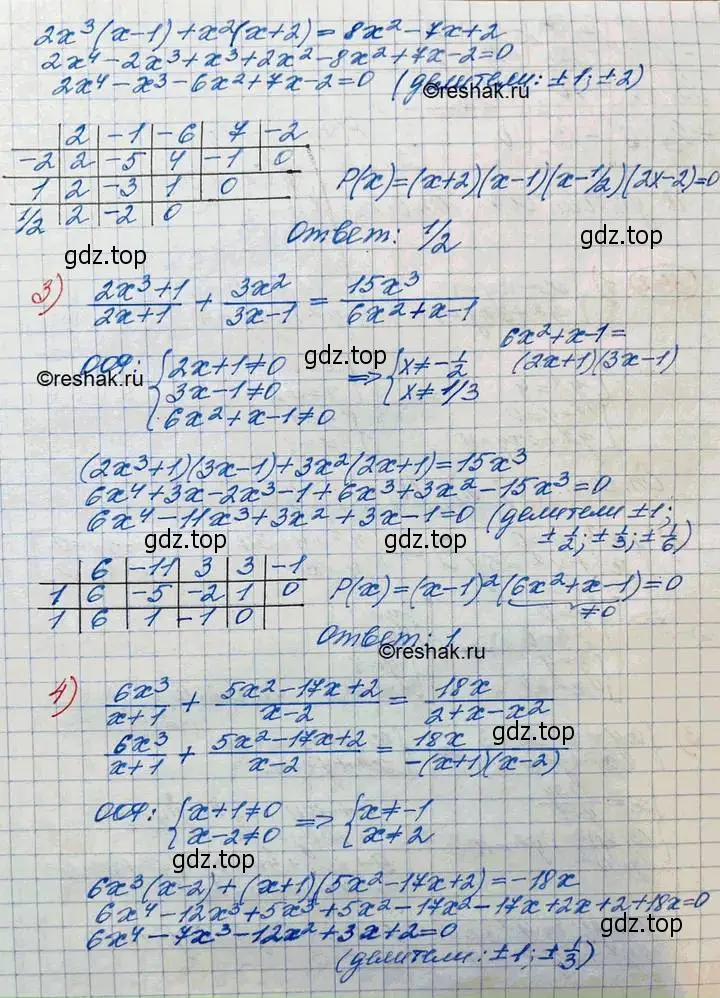 2x³(x-1)+x²(x+2)=8x²-7x+2
2x⁴-2x³+x³+2x²-8x²+7x-2=0
2x⁴-x³-6x²+7x-2=0 (делители: ±1; ±2)
©reshak.ru
2 -1 -6 7 -2
-2 2 -5 4 -1 0
1 2 -3 1 0
1/2 2 -2 0
P(x)=(x+2)(x-1)(x-1/2)(2x-2)=0
Ответ: 1/2
gdz.top
gdz.top
3) (2x³+1)/(2x+1) + 3x²/(3x-1) = 15x³/(6x²+x-1)
6x²+x-1=
(2x+1)(3x-1)
ОДЗ: {2x+1≠0 => {x≠-1/2
3x-1≠0 x≠1/3
6x²+x-1≠0
©reshak.ru
gdz.top
(2x³+1)(3x-1)+3x²(2x+1)=15x³
6x⁴+3x-2x³-1+6x³+3x²-15x³=0
6x⁴-11x³+3x²+3x-1=0 (делители ±1;
±1/2; ±1/3; ±1/6)
gdz.top
gdz.top
6 -11 3 3 -1
1 6 -5 -2 1 0
1 6 1 -1 0
P(x)=(x-1)²(6x²+x-1)=0
≠0
Ответ: 1
©reshak.ru
4) 6x³/(x+1) + (5x²-17x+2)/(x-2) = 18x/(2+x-x²)
6x³/(x+1) + (5x²-17x+2)/(x-2) = 18x/(-(x+1)(x-2))
gdz.top
ОДЗ: {x+1≠0 => {x≠-1
x-2≠0 x≠2
gdz.top
6x³(x-2)+(x+1)(5x²-17x+2)=-18x
6x⁴-12x³+5x³+5x²-17x²-17x+2x+2+18x=0
6x⁴-7x³-12x²+3x+2=0
(делители: ±1; ±1/3)
gdz.top
gdz.top